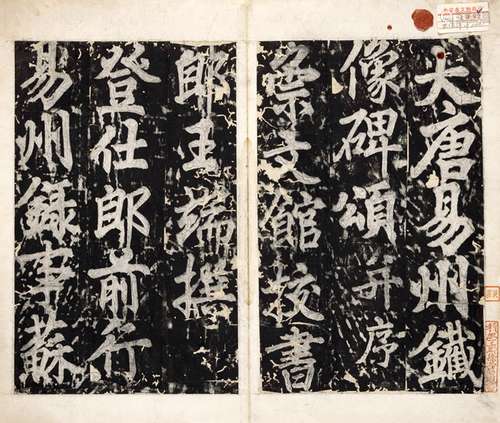 大唐易州鐵
像碑頌并序
崇文館校書
郎王端撰
登仕郎前行
易州錄事蘇